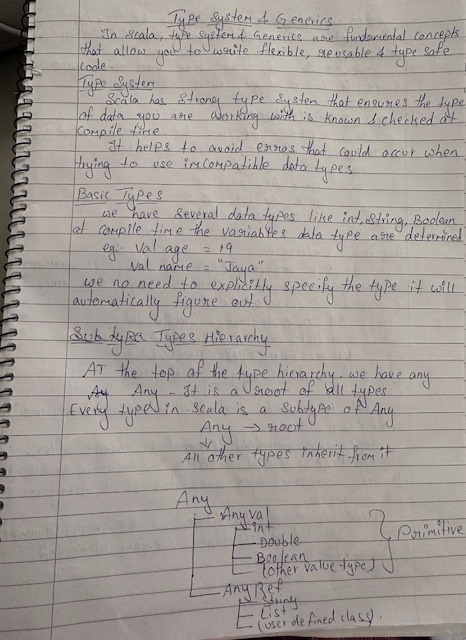 Type System & Generics
In Scala, type system & Generics are fundamental concepts
that allow you to write flexible, reusable & type safe
code.
Type System
Scala has strong type system that ensures the type
of data you are working with is known & checked at
compile time
It helps to avoid erros that could occur when
trying to use imcompatible data types
Basic Types
we have several data types like int, string, Boolean
at compile time the variables data type are determined
eg:- val age = 19
val name = "Jaya"
we no need to explicitly specify the type it will
automatically figure out
Sub type Types Hierarchy
AT the top of the type hierarchy. we have any
Any - It is a root of all types
Every type in scala is a subtype of Any
Any → root
↓
All other types inherit from it
Any
Any val
int
Double
Boolean
(other value type)
Primitive
Any Ref
String
List
(user defined class).